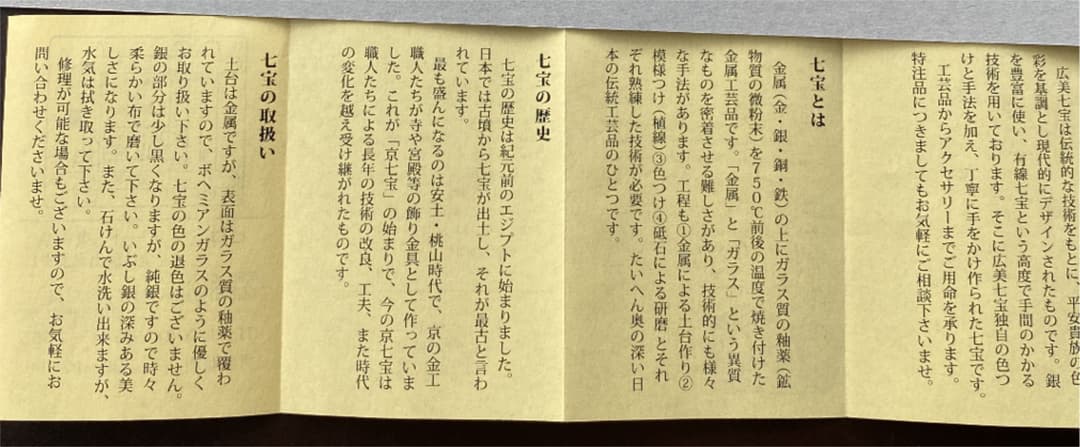 広美七宝は伝統的な技術をもとに、平安貴族の色
彩を基調とし現代的にデザインされたものです。銀
を豊富に使い、有線七宝という高度で手間のかかる
技術を用いております。そこに広美七宝独自の色つ
けと手法を加え、丁寧に手をかけ作られた七宝です。
工芸品からアクセサリーまでご用命を承ります。
特注品につきましてもお気軽にご相談下さいませ。
七宝とは
金属（金・銀・銅・鉄）の上にガラス質の釉薬（鉱
物質の微粉末）を７５０℃前後の温度で焼き付けた
金属工芸品です。「金属」と「ガラス」という異質
なものを密着させる難しさがあり、技術的にも様々
な手法があります。工程も①金属による土台作り②
模様つけ（植線）③色つけ④砥石による研磨とそれ
ぞれ熟練した技術が必要です。たいへん奥の深い日
本の伝統工芸品のひとつです。
七宝の歴史
七宝の歴史は紀元前のエジプトに始まりました。
日本では古墳から七宝が出土し、それが最古と言わ
れています。
最も盛んになるのは安土・桃山時代で、京の金工
職人たちが寺や宮殿等の飾り金具として作っていま
した。これが「京七宝」の始まりで、今の京七宝は
職人たちによる長年の技術の改良、工夫、また時代
の変化を越え受け継がれたものです。
七宝の取扱い
土台は金属ですが、表面はガラス質の釉薬で覆わ
れていますので、ボヘミアンガラスのように優しく
お取り扱い下さい。七宝の色の退色はございません。
銀の部分は少し黒くなりますが、純銀ですので時々
柔らかい布で磨いて下さい。いぶし銀の深みある美
しさになります。また、石けんで水洗い出来ますが、
水気は拭き取って下さい。
修理が可能な場合もございますので、お気軽にお
問い合わせくださいませ。